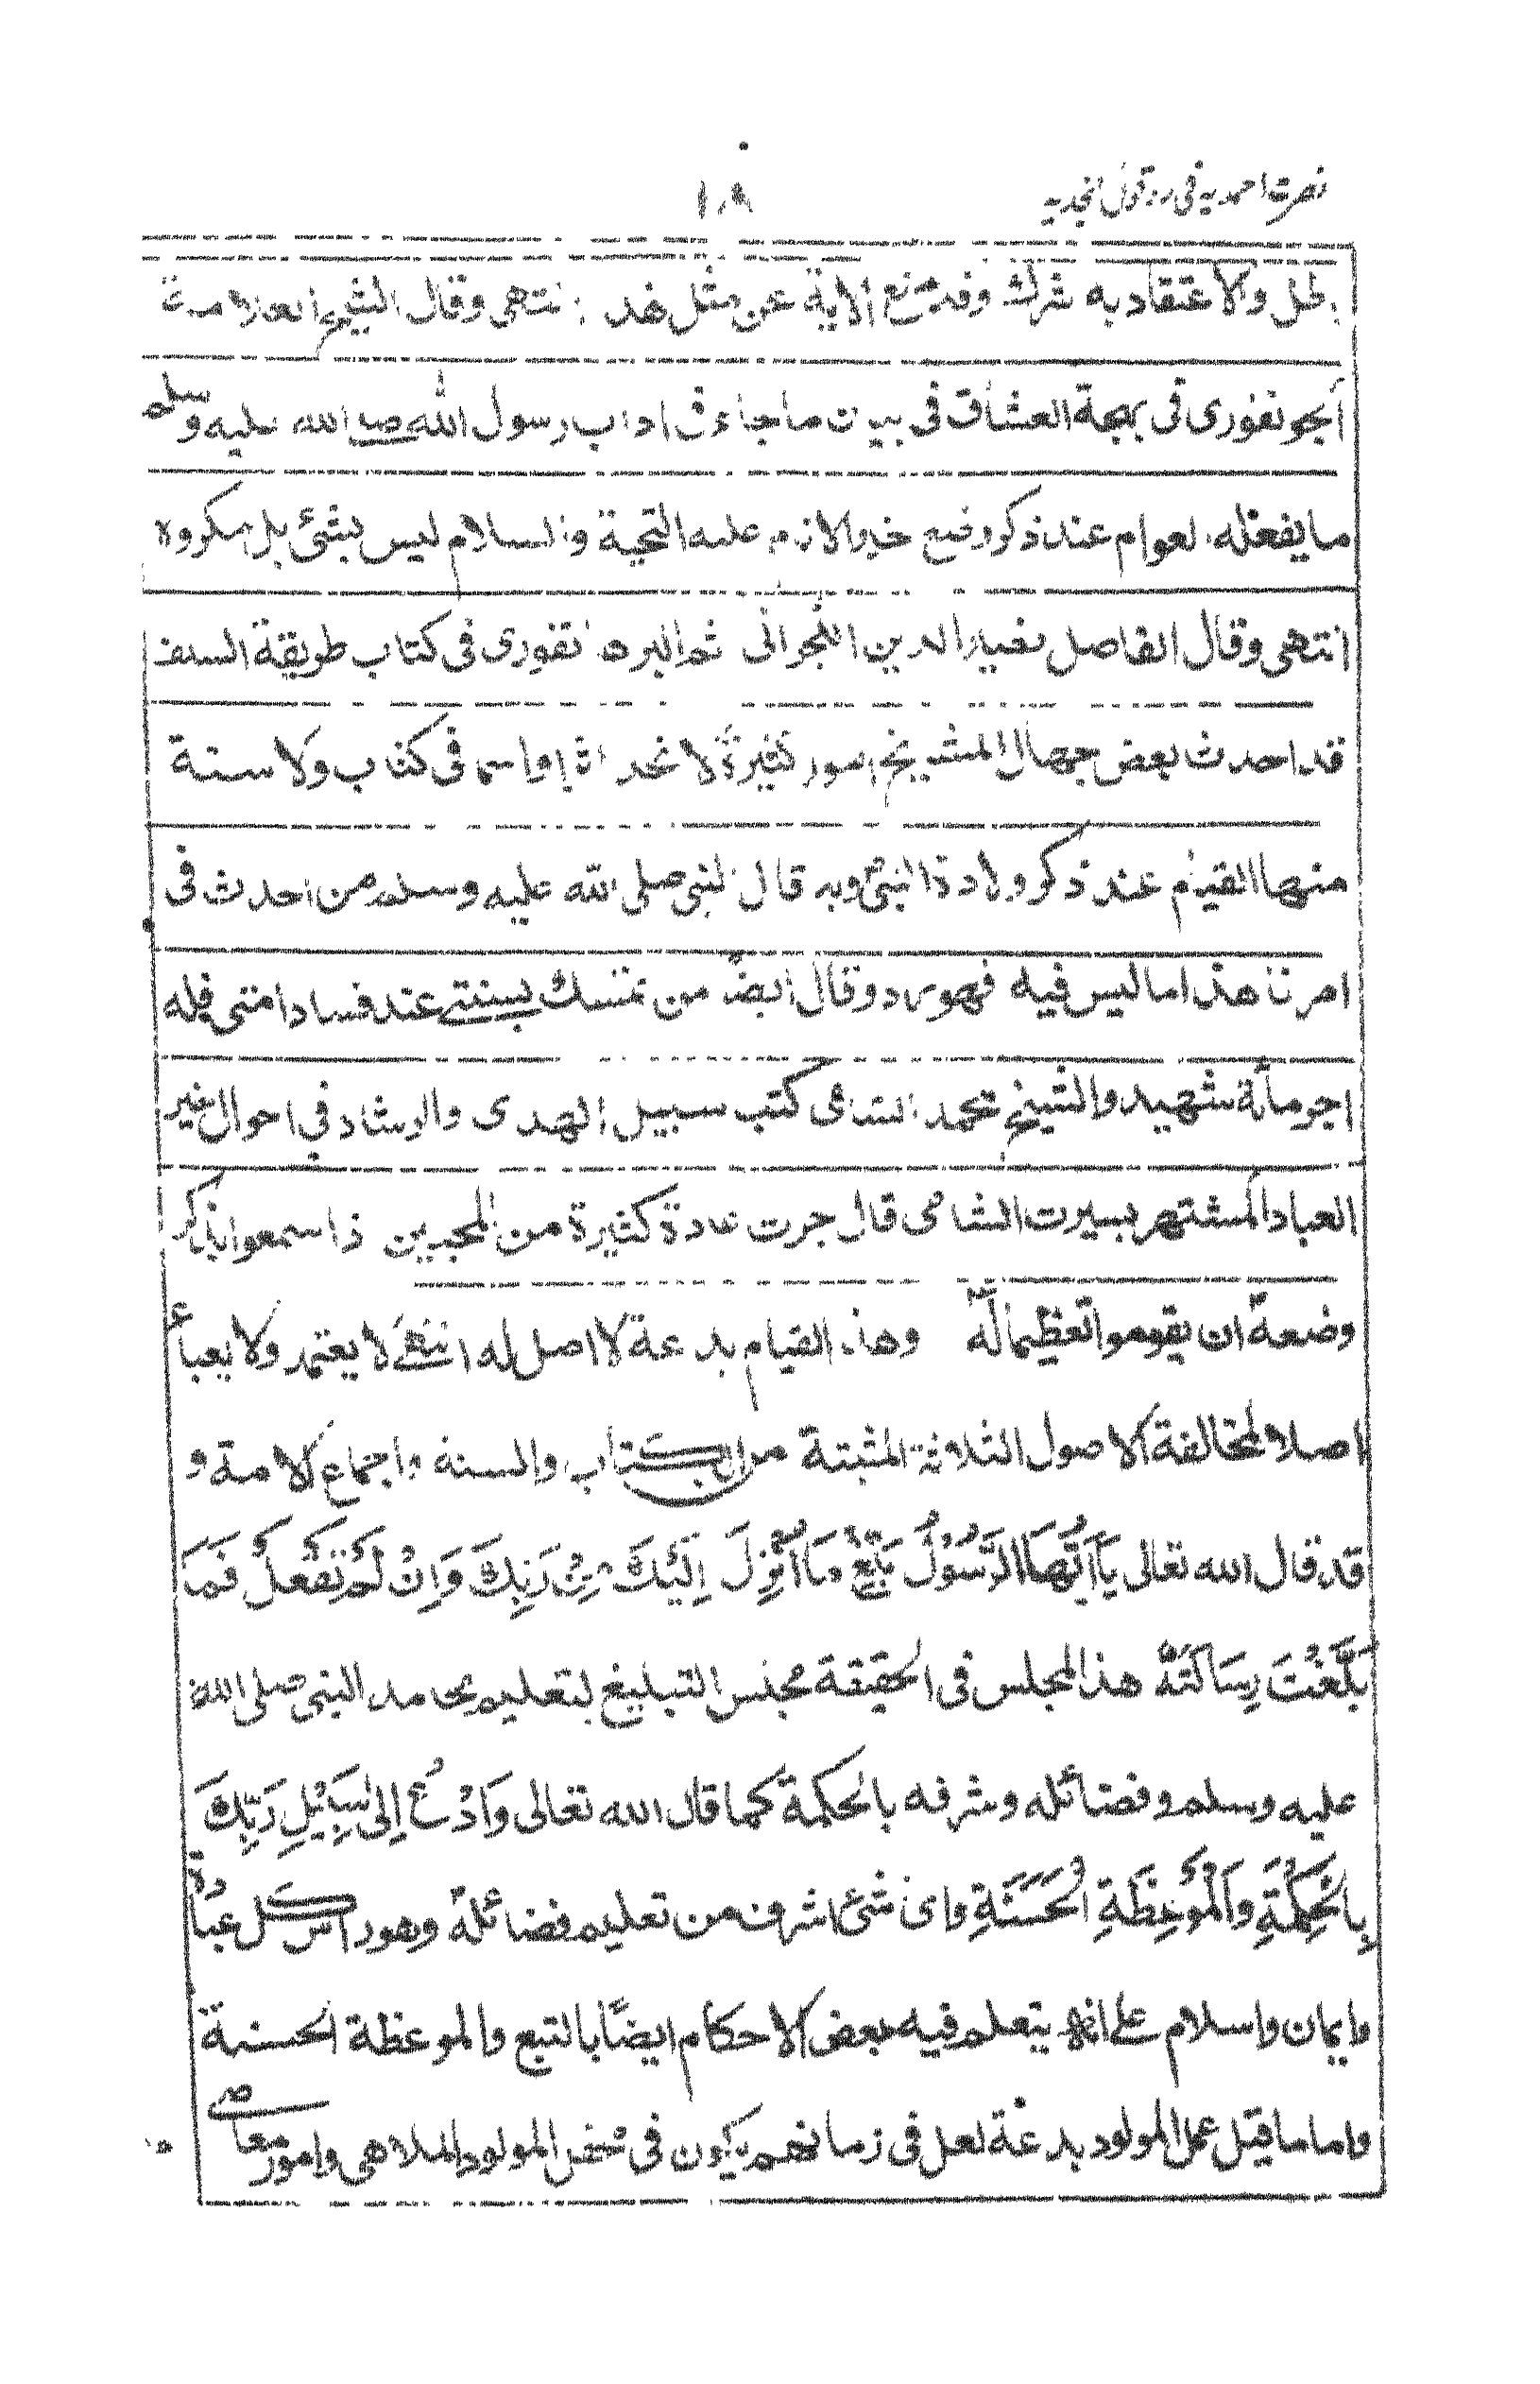 نصرت احمدیہ فی رد قول نجدیہ
۱۰۹
باطل والاعتقاد به شرك وقد منع الاية عن مثل هذا انتهى وقال الشيخ العلامة
الجونفورى فى بهجة العشاق فى بيان ما جاء فى اداب رسول الله صلے الله عليه وسلم
ما يفعله العوام عند ذكر وضع خير الانام عليه التحية والسلام ليس بشئ بل مكروه
انتهى وقال الفاضل نصير الدين الكجراتى ثم البرهانفورى فى كتاب طريقة السلف
قد احدث بعض جهال المشيخ امور كثيرة لا نجد اثرا ولا سما فى كتاب ولا سنة
منها القيام عند ذكر ولادة النبى وبه قال النبى صلى الله عليه وسلم من احدث فى
امرنا هذا ما ليس فيه فهو رد وقال ايضا من تمسك بسنتے عند فساد امتى فله
اجر مأة شهيد والشيخ محمد الشامى كتب سبيل الهدى والرشاد فى احوال خير
العباد المشتهر بسيرت الشامى قال جرت عادة كثيرة من المحبين اذا سمعوا بذكر
وضعه ان يقوموا تعظيما له وهذا القيام بدعة لا اصل له انتهے لا يعتمد ولا يعبأ
اصلا لمخالفة الاصول الثلاثة المثبتة من الكتاب والسنة واجماع الامة و
قد قال الله تعالى يَا اَيُّهَا الرَّسُوْلُ بَلِّغْ مَا اُنْزِلَ اِلَيْكَ مِنْ رَبِّكَ وَاِنْ لَمْ تَفْعَلْ فَمَا
بَلَّغْتَ رِسَالَتَهُ هذا المجلس فى الحقيقة مجلس التبليغ لتعليم محامد النبى صلى الله
عليه وسلم وفضائله وشرفه بالحكمة كما قال الله تعالى وَادْعُ اِلىٰ سَبِيْلِ رَبِّكَ
بِالْحِكْمَةِ وَالْمَوْعِظَةِ الْحَسَنَةِ واى شئ اشرف من تعليم فضائله وهو راس كل عبادة
وايمان واسلام على انه يتعلم فيه بعض الاحكام ايضًا بالتبع والموعظة الحسنة
واما ما قيل عمل المولود بدعة لعل فى زمانهم يكون فى محفل المولود الملاهى وامور معاصى